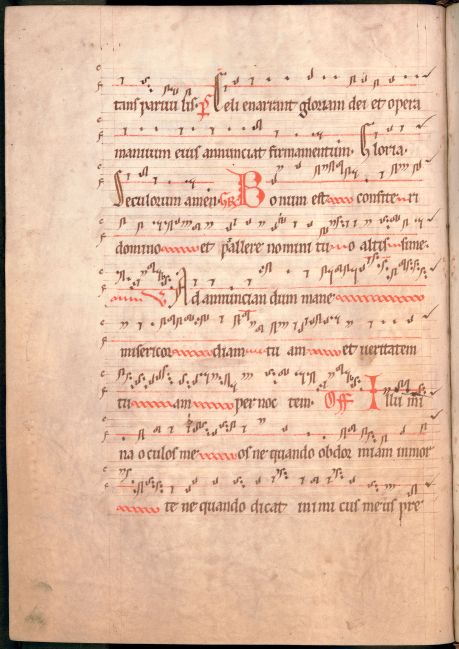 tans paruu lis. Ps Celi enarrant gloriam dei et opera
manuum eius annunciat firmamentum. Gloria.
Seculorum amen. GR Bonum est confite ri
domino et psallere nomini tu o altissime.
V Ad annuncian dum mane
misericor diam tu am et ueritatem
tu am per noc tem. Off Illu mi
na oculos me os ne quando obdor miam in mor
te ne quando dicat inimi cus meus pre